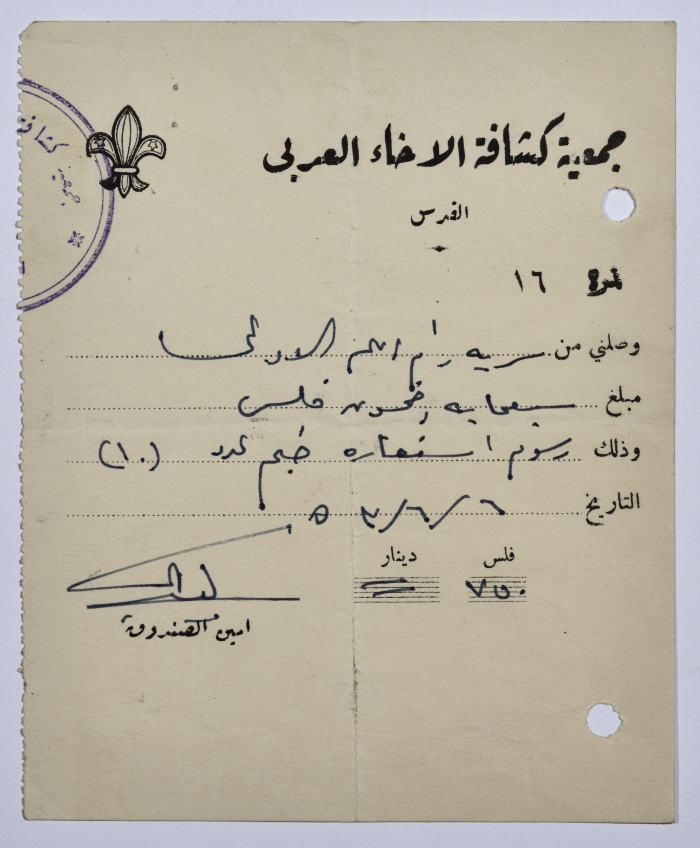 جمعية كشافة الاخاء العربي
القدس
نمرة ١٦
وصلني من سرية رام الله الاولى
مبلغ سبعماية وخمسون فلس
وذلك رسوم استعاره خيم عدد (١٠)
التاريخ ٦/٦/٥٣
فلس دينار
٧٥٠ =
امين الصندوق
كشافة